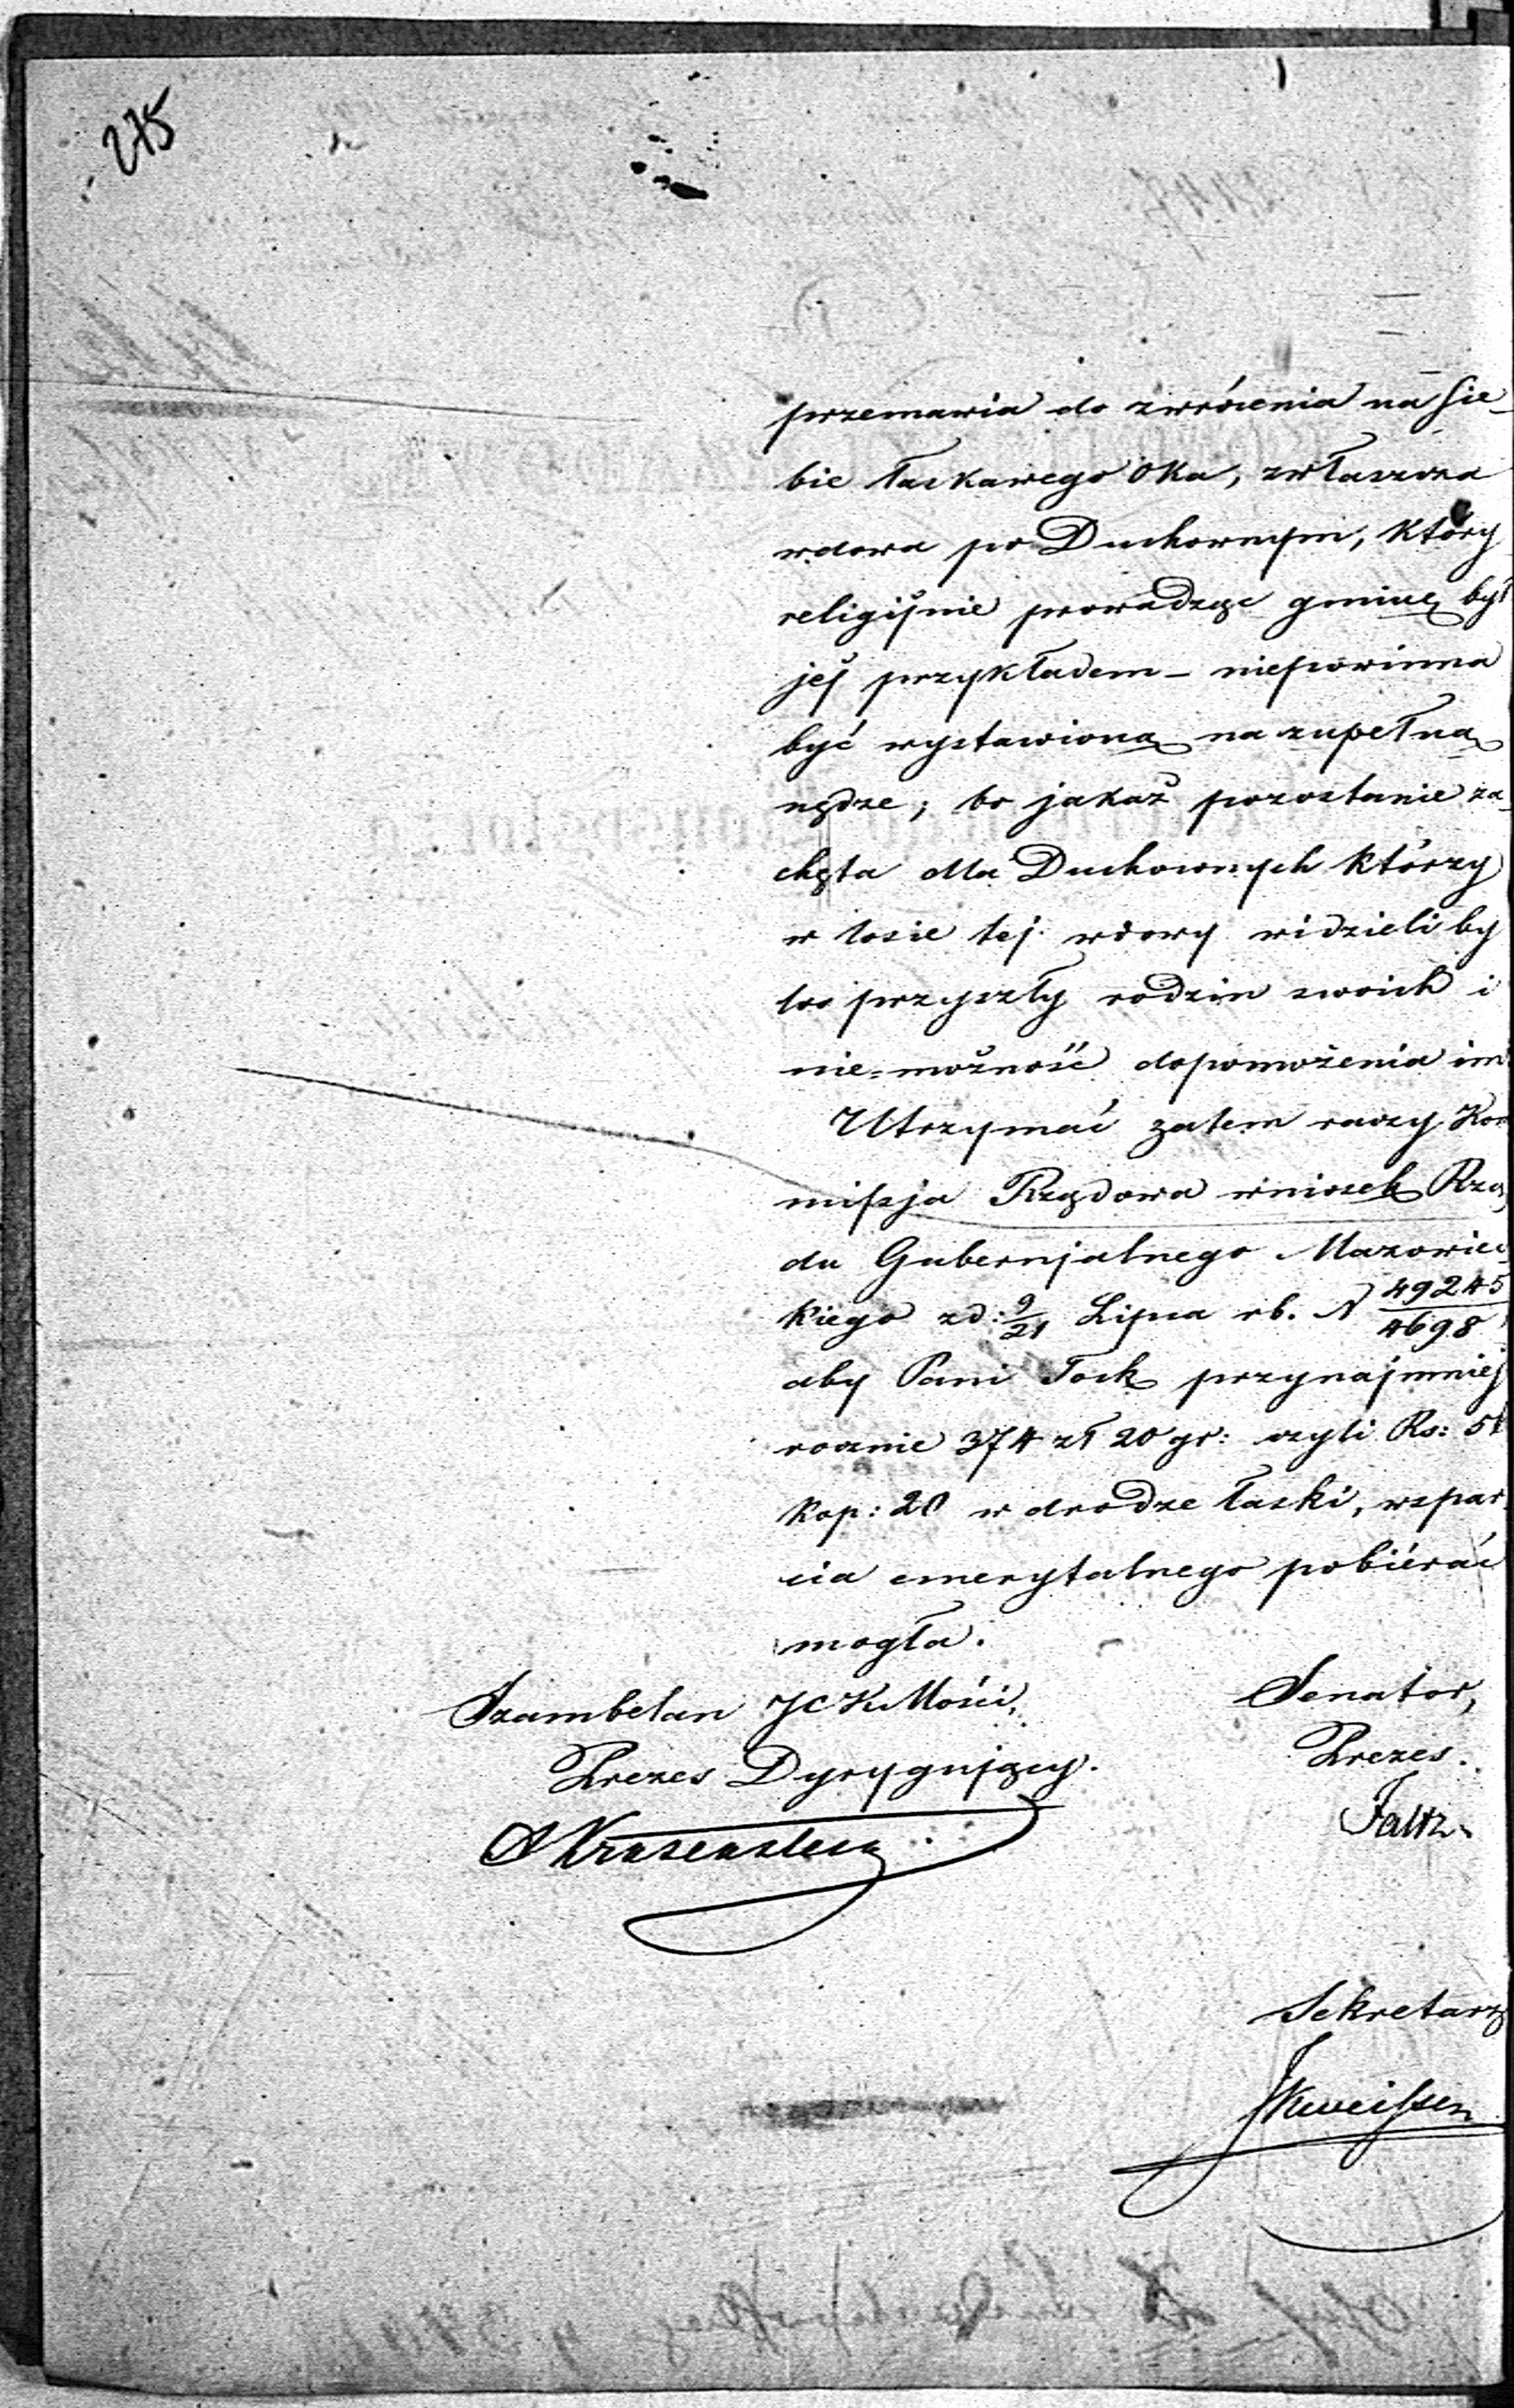 275
przemawia do zwrócenia na sie-
bie łaskawego oka, zwłaszcza
wdowa po Duchownym, który
religijnie prowadząc gminę był
jej przykładem – niepowinna
być wystawioną na zupełną
nędze; bo jakaż pozostanie za-
chęta dla Duchownych którzy
w losie tej wdowy widzieli by
los przyszły rodzin swoich i
nie=możność dopomożenia im
Utrzymać zatem raczy Kom
missja Rządowa wniosek Rzą
du Gubernjalnego Mazowiec
kiego z d: 9/21 Lipca rb. N 49245/4698
aby Pani Tock przynajmniej
rocznie 374 zł 20 gr: czyli Rs: 56
kop: 20 w drodze łaski, wspar-
cia emerytalnego pobiérać
mogła.
Szambelan JCK Mości, Senator,
Prezes Dyrygujący. Prezes.
Faltz
Sekretarz